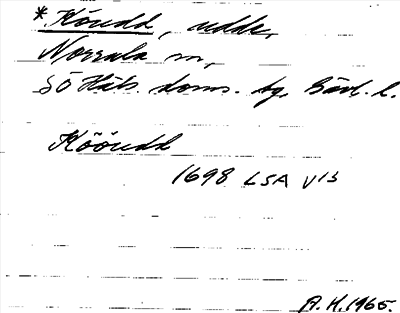 *Köudd, udde,
Norrala sn,
SÖ Häls. doms. bg, Gävl. l.
Kööudd
1698 LSA V13
A. H. 1965.